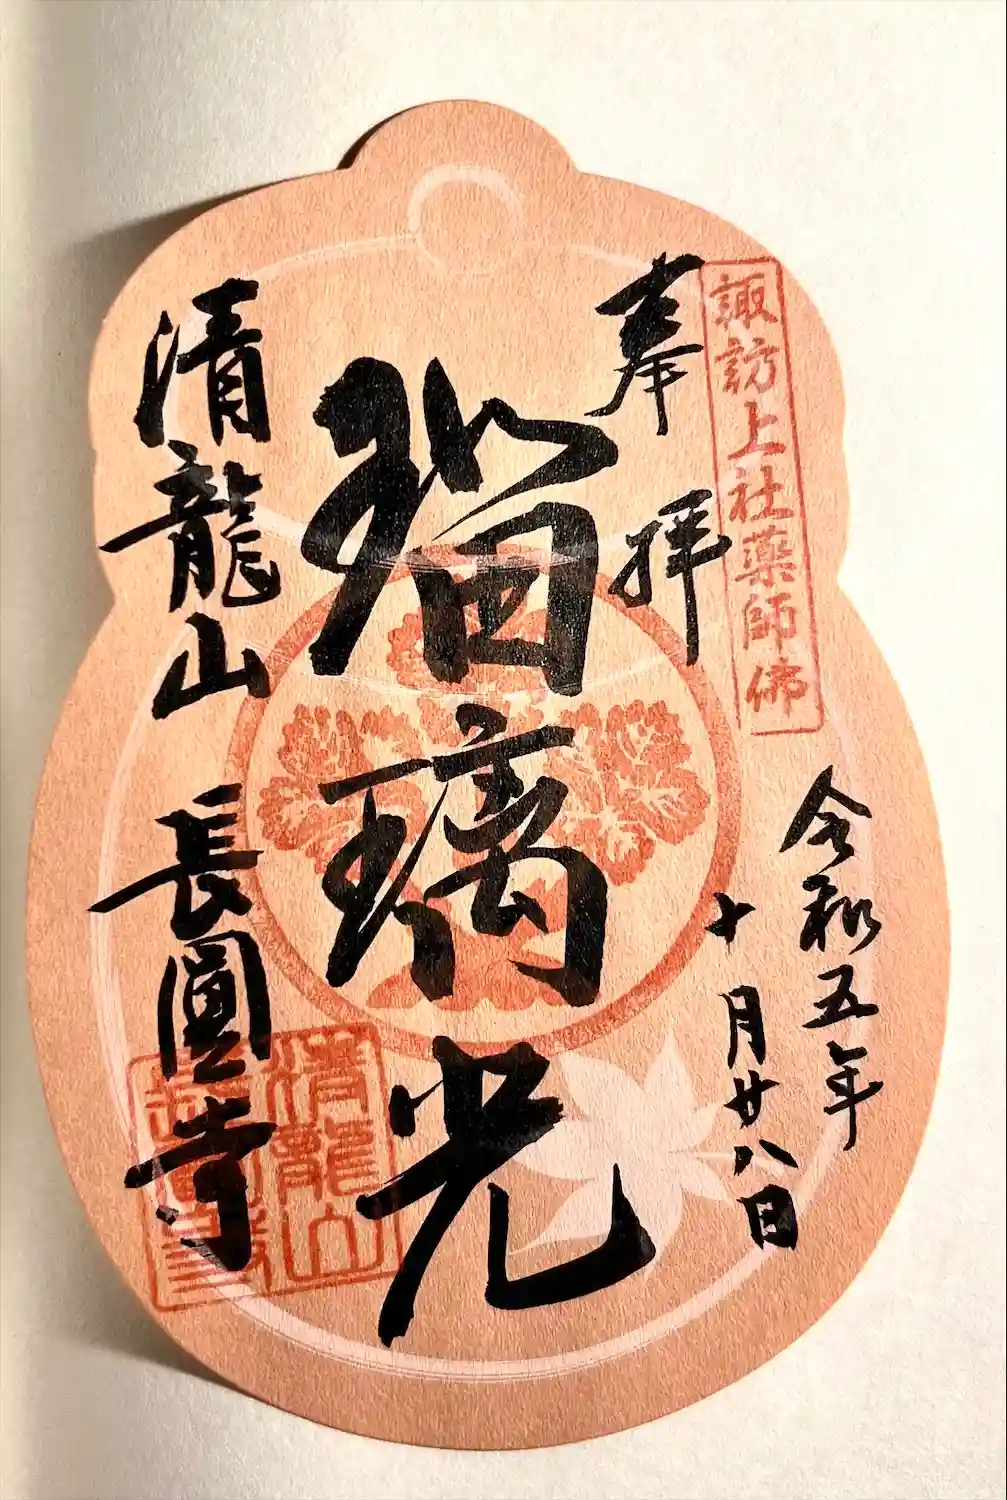 諏訪上社薬師佛
奉拝
令和五年
十月廿八日
瑠璃光
清龍山
長圓寺
清龍山